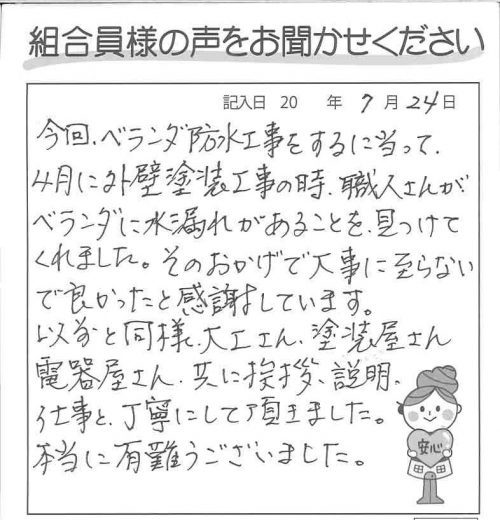 組合員様の声をお聞かせください
記入日 20 年 7月 24日
今回、ベランダ防水工事をするに当って、
4月に外壁塗装工事の時、職人さんが
ベランダに水漏れがあることを、見つけて
くれました。そのおかげで大事に至らない
で良かったと感謝しています。
以前と同様、大工さん、塗装屋さん
電器屋さん、共に挨拶、説明、
仕事と、丁寧にして頂きました。
本当に有難うございました。
安心